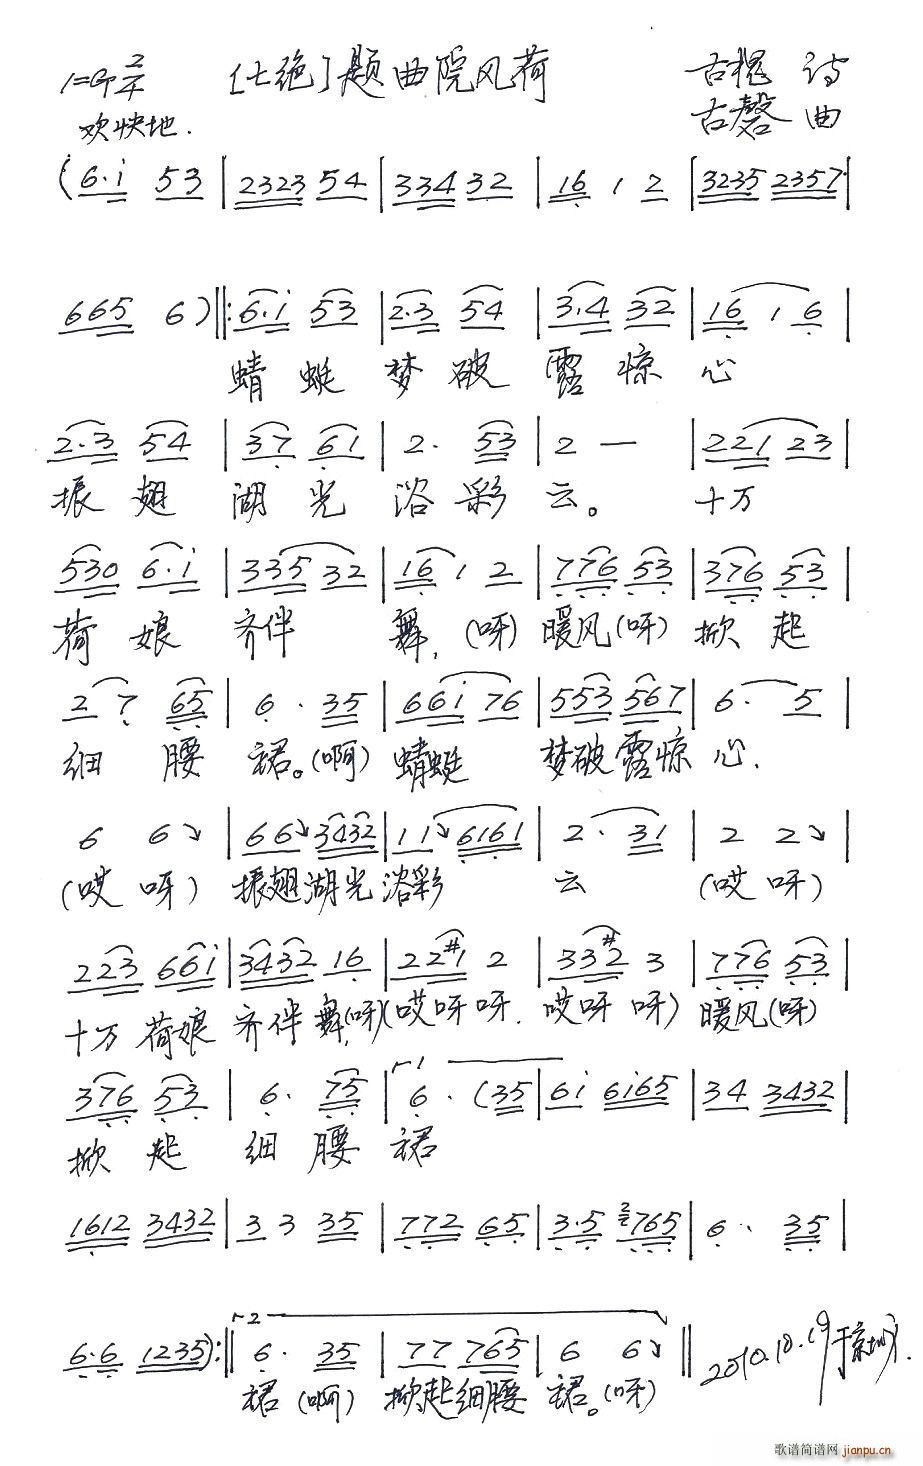 1=G 2/4 [七绝]题曲院风荷 古槐 诗
欢快地. 古磬 曲
(6·i 53 | 2323 54 | 334 32 | 16 1 2 | 3235 2357 |
665 6) ||: 6·i 53 | 2·3 54 | 3·4 32 | 16 1 6 |
蜻蜓 梦破 露惊 心
2·3 54 | 37 61 | 2· 53 | 2 — | 221 23 |
振翅 湖光 浴彩 云。 十万
530 6·i | 335 32 | 16 1 2 | 776 53 | 376 53 |
荷娘 齐伴 舞,(呀) 暖风(呀) 掀起
2 7 65 | 6· 35 | 66i 76 | 553 567 | 6· 5 |
细腰 裙。(啊) 蜻蜓 梦破露惊 心.
6 6↘ | 66↘ 3432 | 11↘ 6161 | 2· 31 | 2 2↘ |
(哎呀) 振翅湖光 浴彩 云 (哎呀)
223 66i | 3432 16 | 22#1 2 | 33#2 3 | 776 53 |
十万荷娘 齐伴舞,(呀)(哎呀呀. 哎呀呀) 暖风(呀)
376 53 | 6· 75 | 1 6· (35 | 6i 6i65 | 34 3432 |
掀起 细腰 裙
1612 3432 | 3 3 35 | 772 65 | 3·5 2765 | 6· 35 |
6·6 1235) :|| 2 6· 35 | 77 765 | 6 6↘ || 2010.10.19于京城.
裙(啊) 掀起细腰 裙。(呀)
歌谱简谱网 jianpu.cn